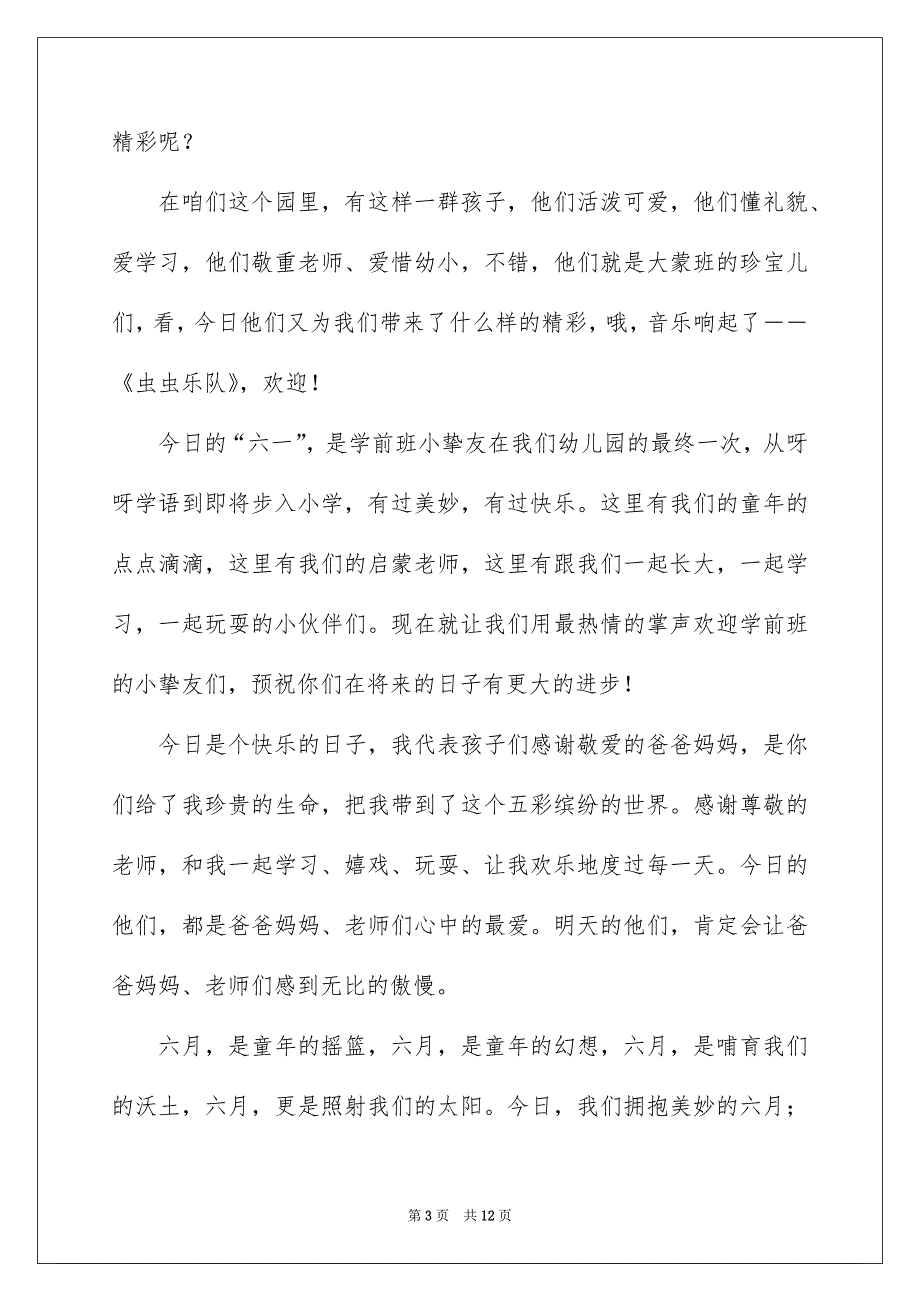 精彩呢？
在咱们这个园里，有这样一群孩子，他们活泼可爱，他们懂礼貌、
爱学习，他们敬重老师、爱惜幼小，不错，他们就是大蒙班的珍宝儿
们，看，今日他们又为我们带来了什么样的精彩，哦，音乐响起了－－
《虫虫乐队》，欢迎！
今日的“六一”，是学前班小挚友在我们幼儿园的最终一次，从呀
呀学语到即将步入小学，有过美妙，有过快乐。这里有我们的童年的
点点滴滴，这里有我们的启蒙老师，这里有跟我们一起长大，一起学
习，一起玩耍的小伙伴们。现在就让我们用最热情的掌声欢迎学前班
的小挚友们，预祝你们在将来的日子有更大的进步！
今日是个快乐的日子，我代表孩子们感谢敬爱的爸爸妈妈，是你
们给了我珍贵的生命，把我带到了这个五彩缤纷的世界。感谢尊敬的
老师，和我一起学习、嬉戏、玩耍、让我欢乐地度过每一天。今日的
他们，都是爸爸妈妈、老师们心中的最爱。明天的他们，肯定会让爸
爸妈妈、老师们感到无比的傲慢。
六月，是童年的摇篮，六月，是童年的幻想，六月，是哺育我们
的沃土，六月，更是照射我们的太阳。今日，我们拥抱美妙的六月；
第 3 页 共 12 页